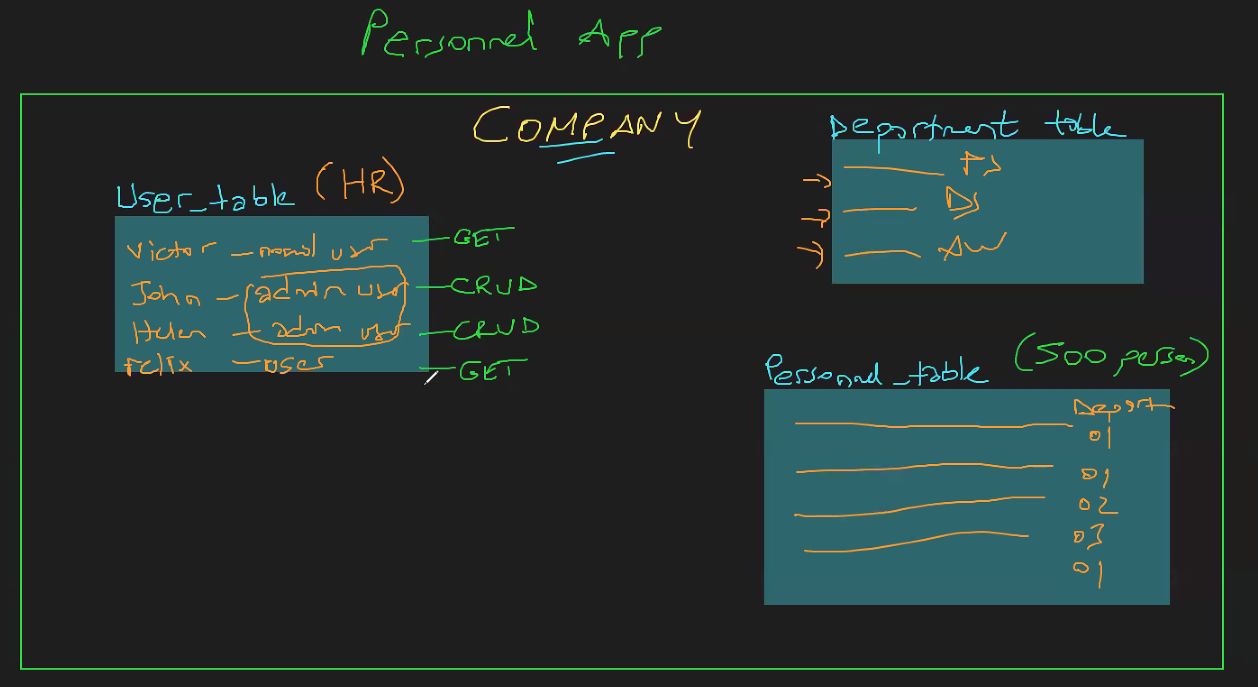 Personnel App
COMPANY
User_table (HR)
Victor – normal user – GET
John – admin user – CRUD
Helen – admin user – CRUD
Felix – user – GET
Department table
FS
DS
AW
Personnel_table (500 person)
Depart
01
01
02
03
01